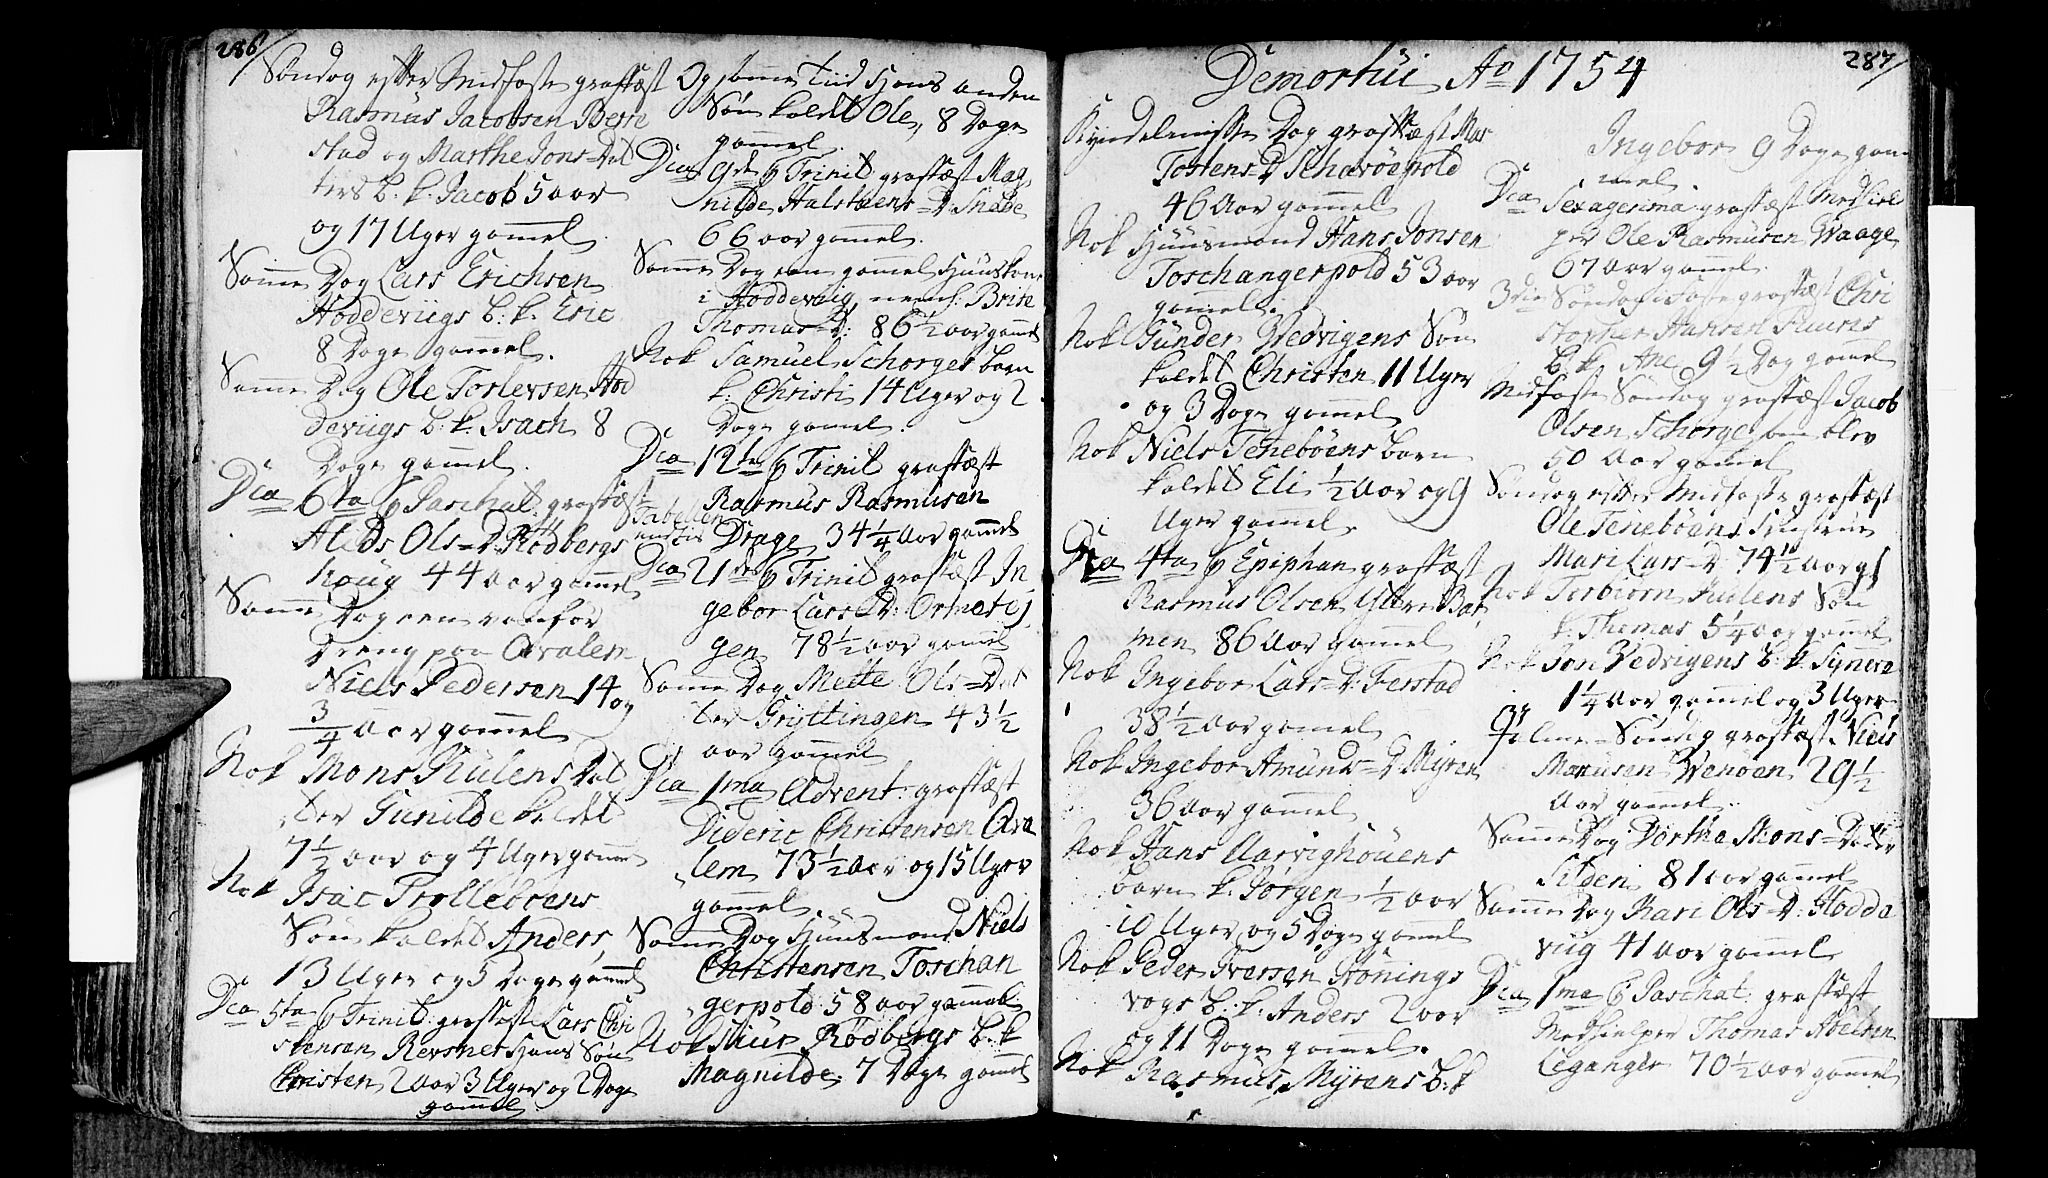 286
Søndag efter Midfaste grafæst
Rasmus Jacobsen Berre
stad og Marthe Jons-Dat
ters b. k. Jacob 5 aar
og 17 Uger gamel.
Samme Dag Lars Erichsen
Hoddeviigs b: k. Eric
8 Dage gamel.
Samme Dag Ole Torlevsen Hod
deviigs b. k. Isach 8
Dage gamel.
Dca 6ta p Paschat. grafæst
Alids Ols-D: Rødbergs
houg 44 aar gamel
Samme Dag een vanfør
Dreng paa Aralem
Niels Pedersen 14 og
3/4 Aar gamel
Nok Mons Kulens Dat
ter Gunilde kaldet
7 1/2 aar og 4 Uger gamel
Nok Isac Trollebøens
Søn kaldet Anders,
13 Uger og 5 Dage gamel
Dca 5ta p Trinit: grafæst Lars Chri
stensen Revsnes Hans Søn
Christen 2 aar 3 Uger og 2 Dage
gamel
Og samme tiid Hans anden
Søn kaldet Ole, 8 Dage
gamel.
Dca 9de p Trinit grafæst Mag
nilde Halstens-D:
66 aar gamel.
Samme Dag een gamel Huuskone
i Hoddeviig, nemf: Brite
Thomas-D: 86 1/2 aar gamel
Nok Samuel Schorges barn
k: Christi 14 Uger og 2
Dage gamel.
Dca 12te p Trinit grafæst
Rasmus Rasmusen
Drage, 34 1/4 Aar gamel
Dca 21de p Trinit grafæst In
gebor Lars-D: Ormstej
gen 78 1/2 aar gamel
Samme Dag Mette Ols-Dat
ter Gryttingen 43 1/2
aar gamel
Dca 1ma Advent: grafæst
Dideric Christensen Ara
lem 73 1/2 Aar og 15 Uger
gamel
Samme Dag Huusmand Niels
Christensen Toschan
gerpold 58 aar gamel
Nok Siur Rødbergs b. k
Magnilde 7 Dage gamel
Demortui Ao 1754
287
Kyndelmisse Dag grafæst Mar
Tostens-D Scharøepold
46 Aar gamel
Nok Huusmand Hans Jonsen
Toschangerpold 53 aar
gamel.
Nok Gunder Vedvigens Søn
kaldet Christen 11 Uger
og 3 Dage gamel
Nok Niels Tenebøens barn
kaldet Eli 1/2 Aar og 9
Uger gamel.
Dca 4ta p Epiphan grafæst
Rasmus Olsen Ytre Bat
men 86 Aar gamel
Nok Ingebor Lars-D: Ferstad
38 1/2 Aar gamel
Nok Ingebor Amunds-D Myren
36 aar gamel
Nok Hans Aarvighouens
barn k. Jørgen 1/2 aar
10 Uger og 5 Dage gamel
Nok Peder Iversen Hønings
vogs b: k: Anders 2 aar
og 11 Dage gamel.
Nok Rasmus Myrens b: k
Ingebor 9 Dage gam
mel.
Dca Sexagesima grafæst Medhiel
per Ole Rasmusen Waage
67 Aar gamel.
3die Søndag i Faste grafæst Chri
stopher Hansen
b: k: Ane 9 1/2 Dag gamel
Midfaste Søndag grafæst Jacob
Olsen Schorge, om blev
50 Aar gamel
Søndag efter Midfaste grafæst
Ole Tenebøens
Mari Lars-D: 74 1/2 aar gl
Nok Torbiørn Kulens Søn
k. Thomas 5 1/4 aar gamel
Nok Jon Vedvigens b: k. Synera
1 1/4 Aar gamel og 3 Uger
Palme-Søndag grafæst Niels
Wenøen 29 1/2
Aar gamel.
Samme Dag Dorthe Mons-Datter
Silden 81 aar gamel
Samme Dag Kari Ols-D: Hodde
viig 41 Aar gamel
Dca 1ma p Paschat: grafæst
Medhielper Thomas Abelsen
Leganger 70 1/2 aar gamel